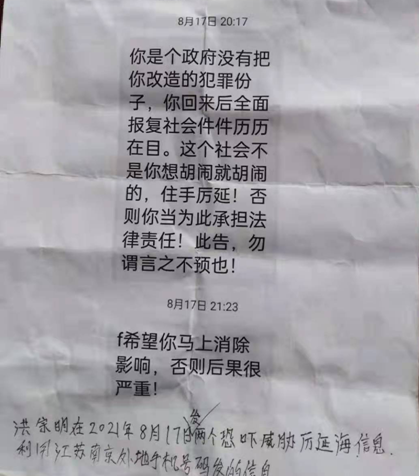 8月17日 20:17
你是个政府没有把
你改造的犯罪份
子，你回来后全面
报复社会件件历历
在目。这个社会不
是你想胡闹就胡闹
的，住手厉延！否
则你当为此承担法
律责任！此告，勿
谓言之不预也！
8月17日 21:23
f希望你马上消除
影响，否则后果很
严重！
发
洪家明在2021年8月17日两个恐吓威胁厉延海信息.
利用江苏南京外地手机号码发的信息